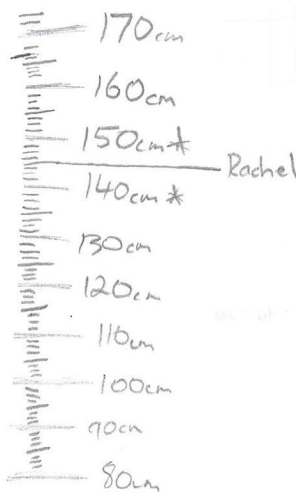 170cm
160cm
150cm*
Rachel
140cm*
130cm
120cm
110cm
100cm
90cm
80cm